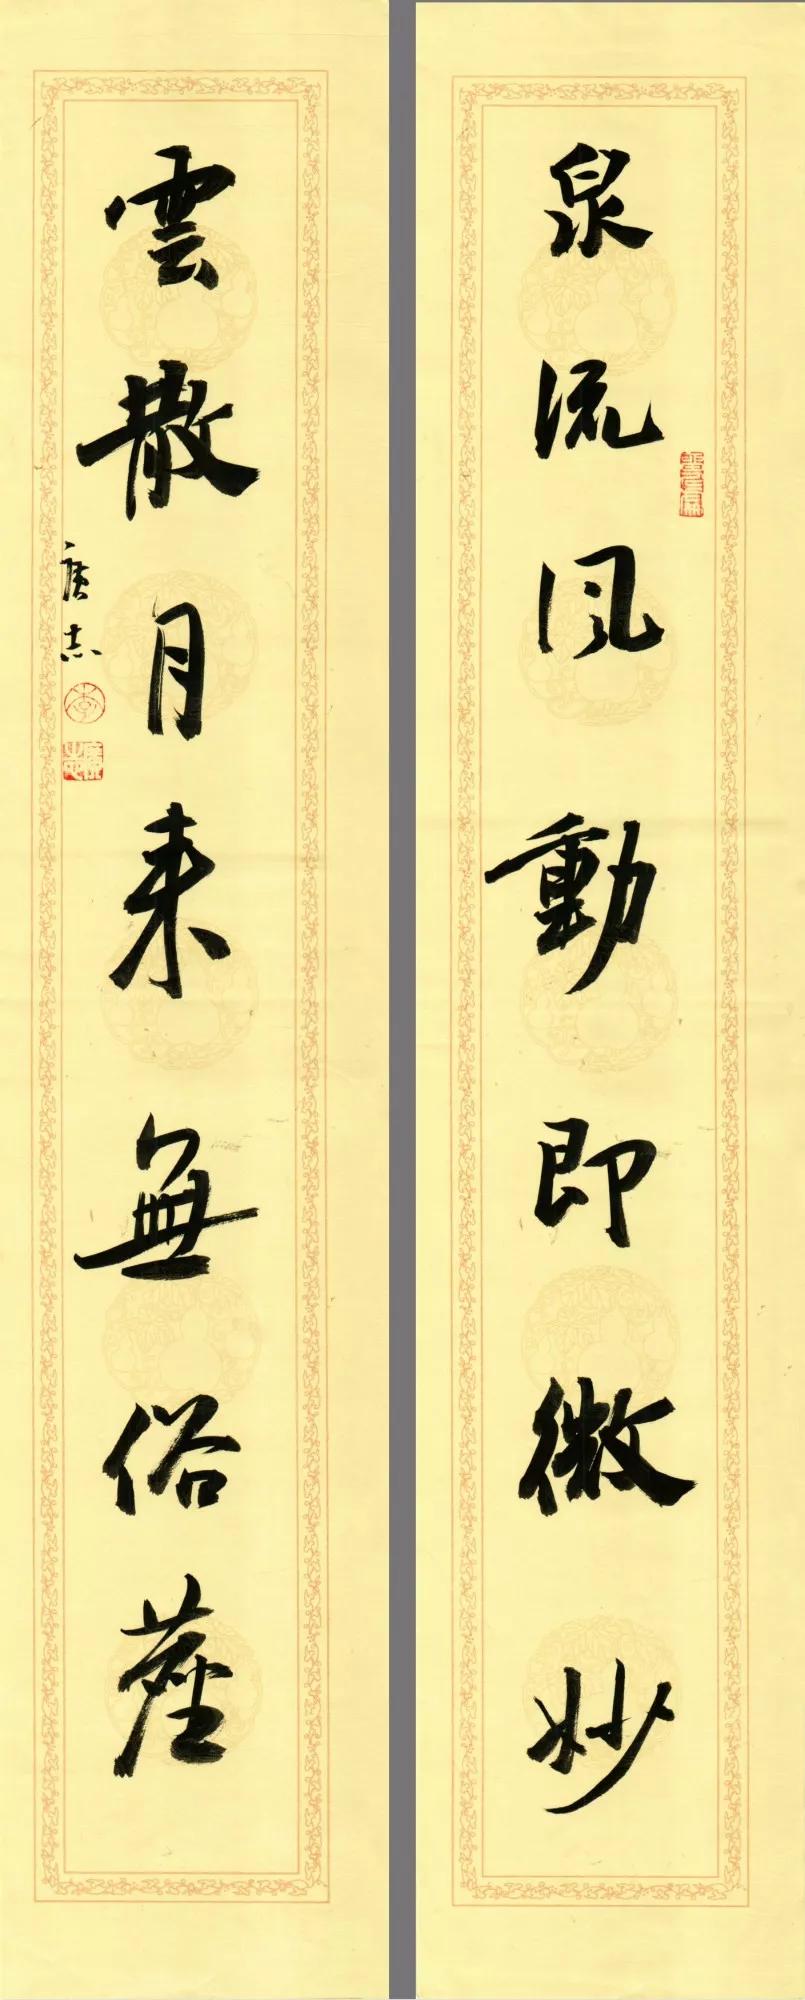 泉流風動即微妙
雲散月来無俗塵
廣志